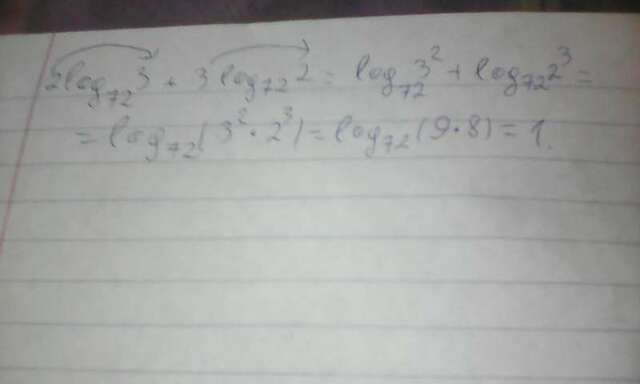 2log₇₂3 + 3log₇₂2 = log₇₂3² + log₇₂2³ =
= log₇₂(3² · 2³) = log₇₂(9 · 8) = 1.